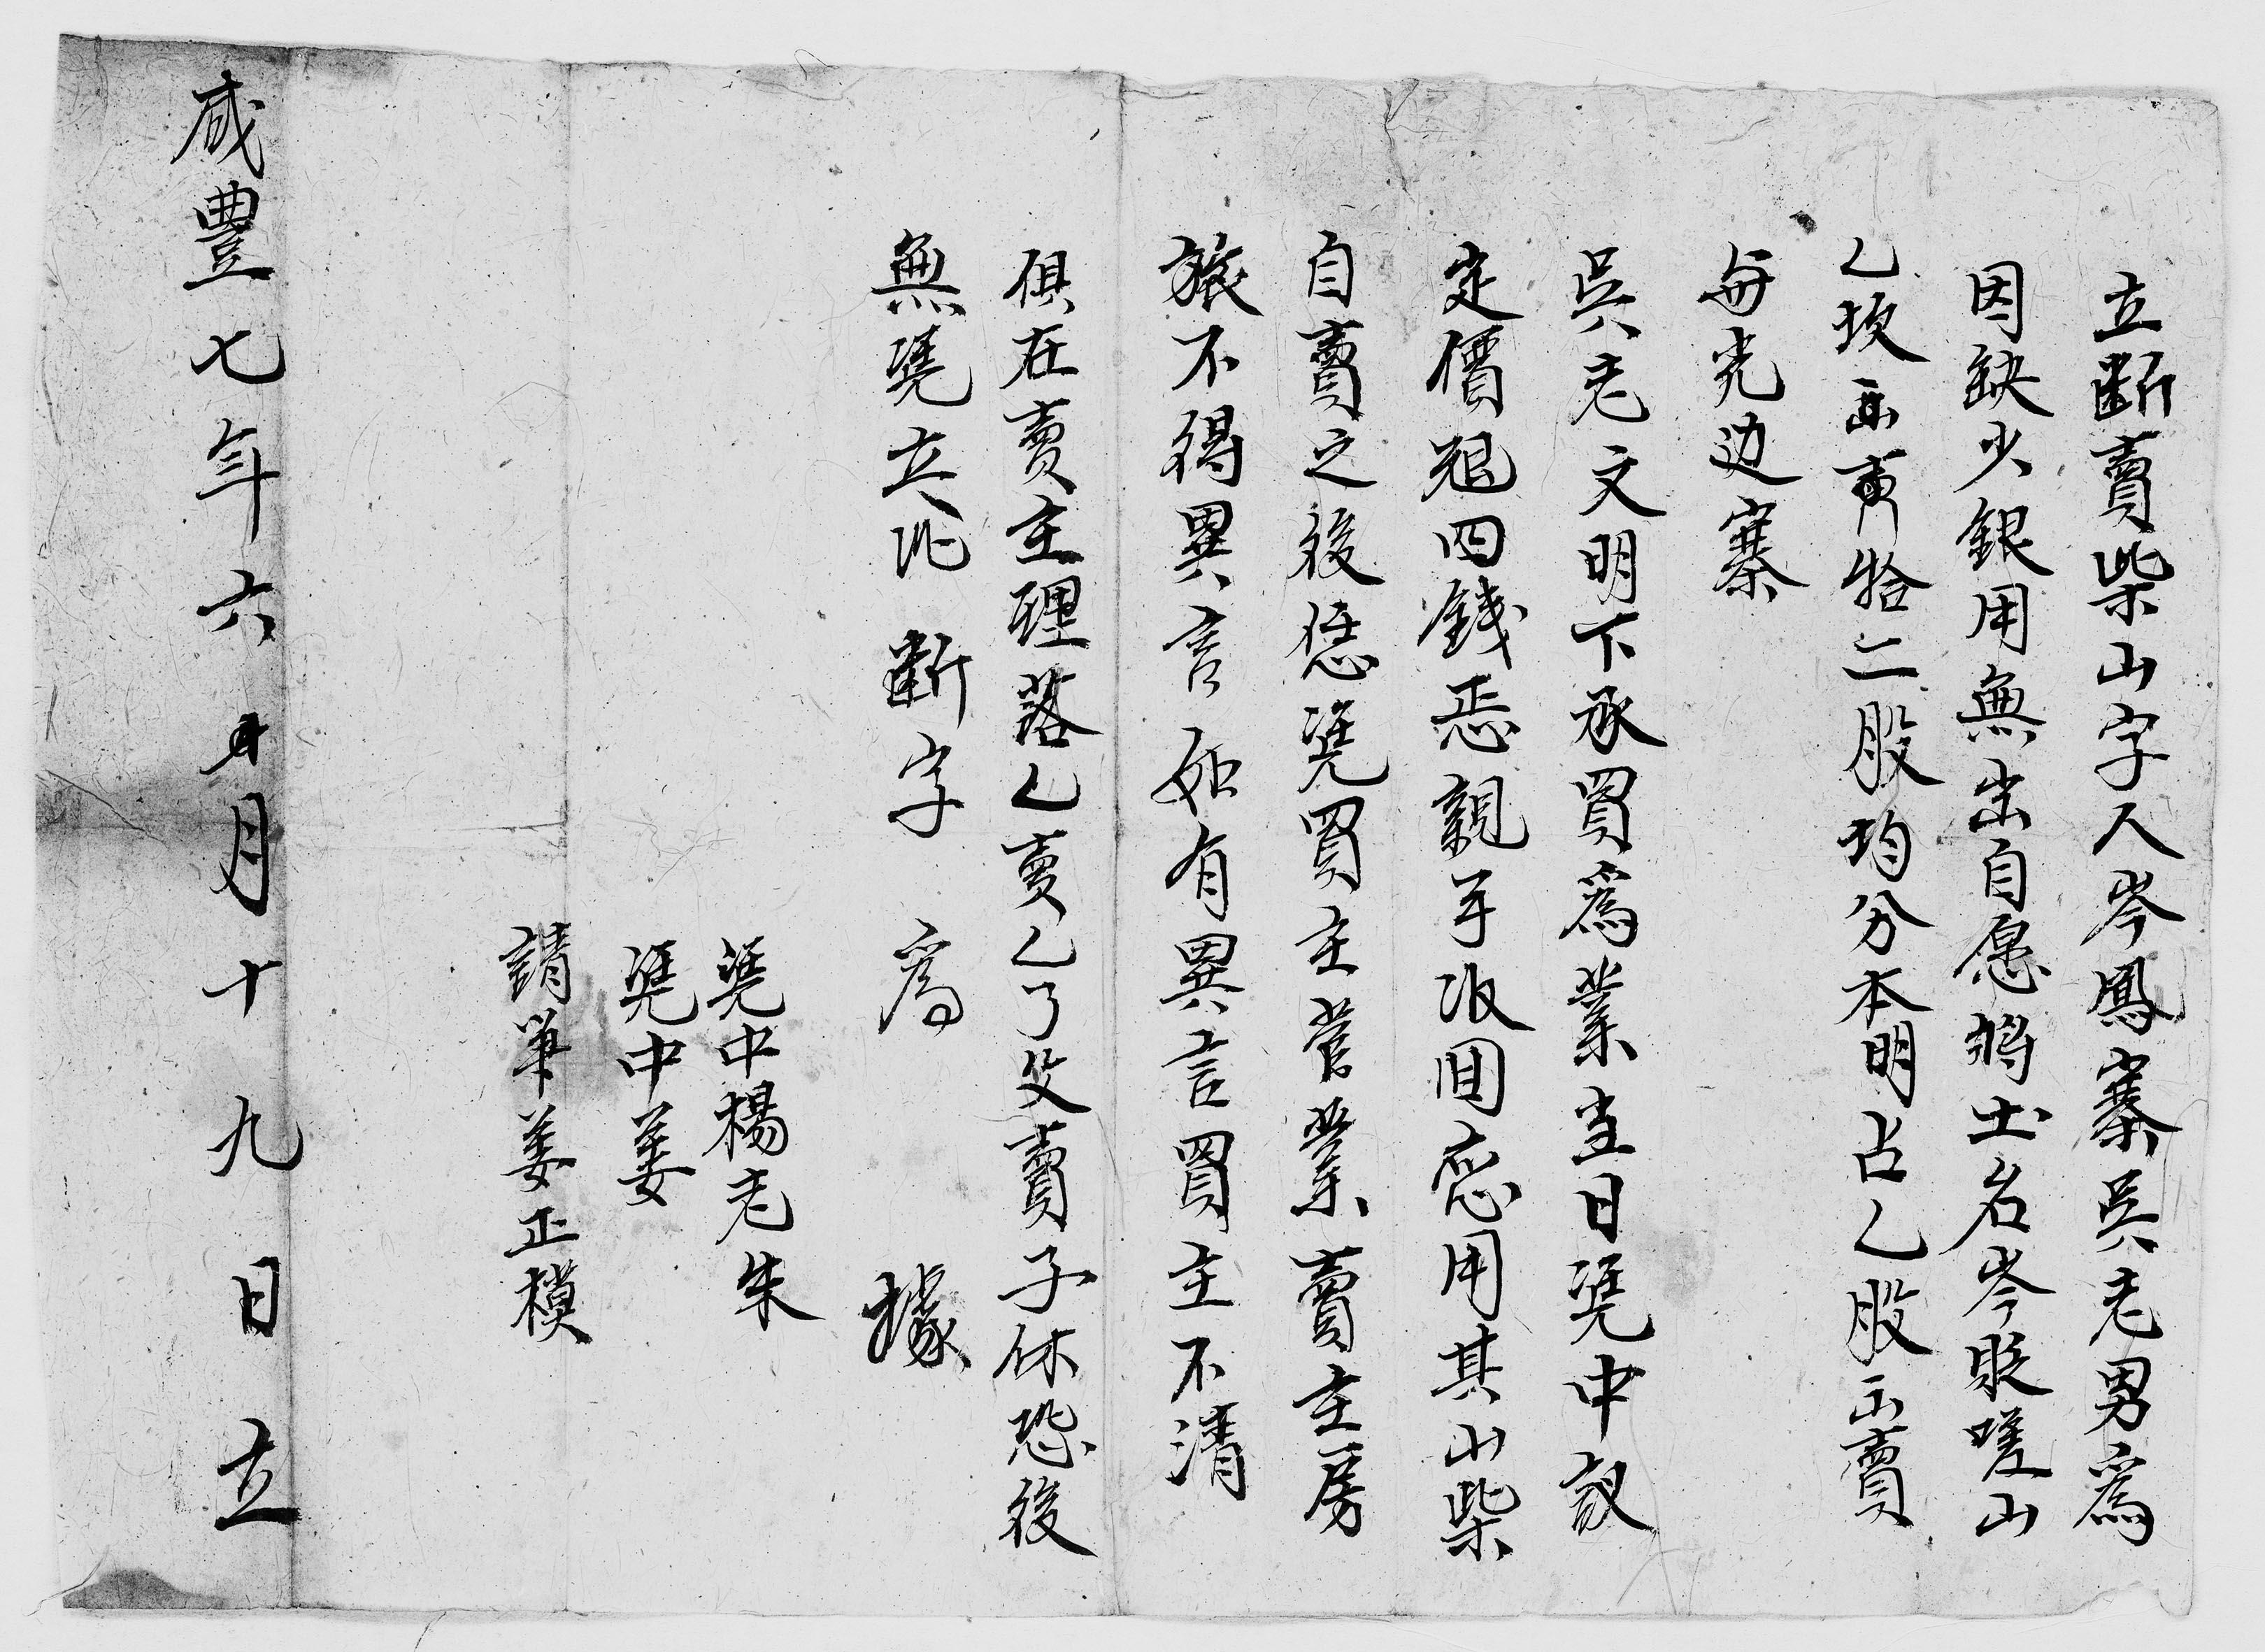 立斷賣柴山字人岑鳳寨吳老男爲
因缺少銀用無出自愿將土名岑股嗟山
乙坎出賣拾二股均分本明占乙股出賣
與光边寨
吳老文明下承買爲業当日凴中議
定價銀四錢悉親手收囬應用其山柴
自賣之後恁凴買主管業賣主房
族不得異言如有異言買主不清
俱在賣主理落乙賣乙了父賣子休恐後
無凴立此斷字爲據
凴中楊老朱
凴中姜
請筆姜正模
咸豐七年六月十九日立